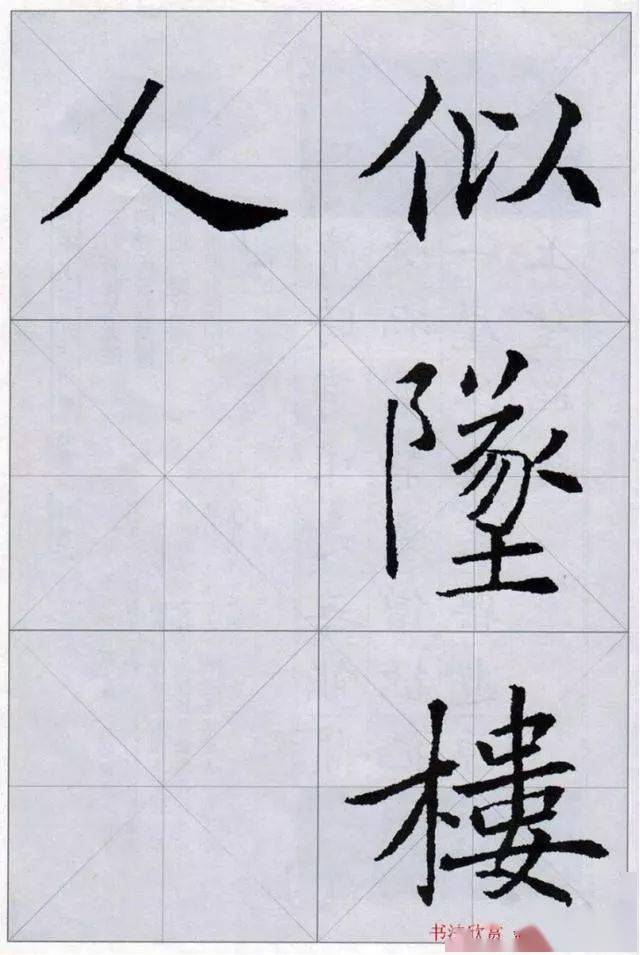 似墜樓
人
书法欣赏